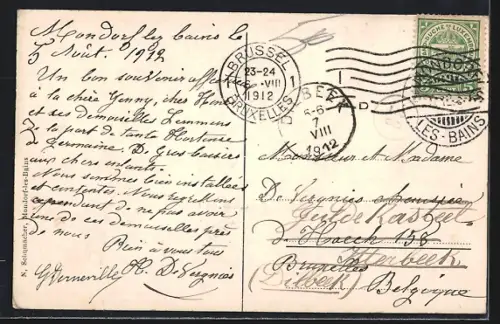 Mondorf les bains le
5 Août. 1912
Un bon souvenir
à la chère Jenny, chez
et ses demoiselles Lemmens
de la part de tante Hortense
de Germaine. De Gros baisers
aux chers enfants.
Nous sommes bien installées
et contentes. Nous regrettons
cependant de ne pas avoir
une de ces demoiselles près
de nous
Bien à vous tous
H. De Seignies
N. Schumacher, Mondorf-les-Bains
BRUSSEL
23-24
VIII
1912
BRUXELLES
1
DILBEEK
5-6
7
VIII
1912
MONDORF
LES-BAINS
Monsieur et Madame
De Seignies
de Kasteel
d Hoech 158
Itterbeek
Bruxelles
(Dilbeek)
Belgique